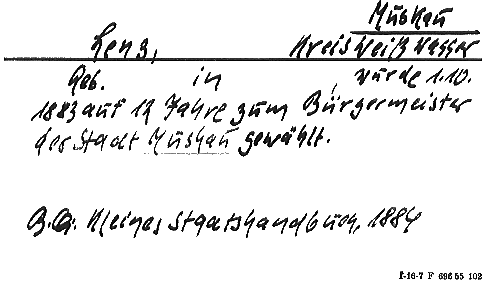 Muskau
Lenz, Kreis Weißwasser
Geb. in , wurde 1.10.
1883 auf 12 Jahre zum Bürgermeister
der Stadt Muskau gewählt.
B.G. Kleines Staatshandbuch, 1884
I-16-7 F 696 55 102